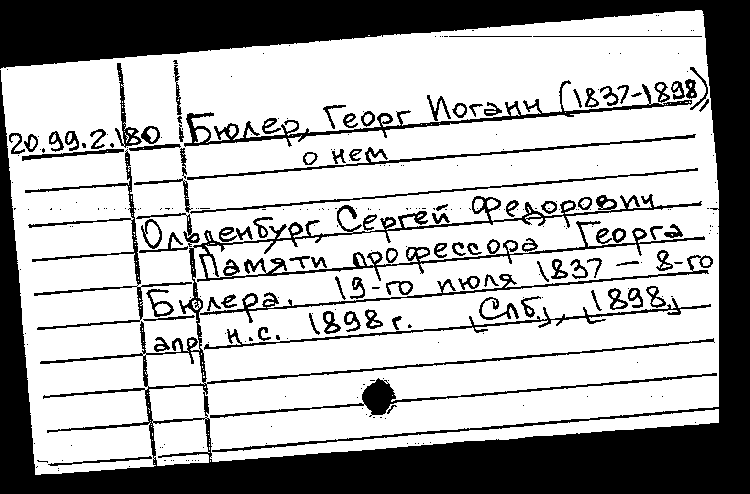 20.99.2.180 Бюлер, Георг Иоганн (1837-1898)
о нем
Ольденбург, Сергей Федорович
Памяти профессора Георга
Бюлера. 19-го июля 1837 — 8-го
апр. н.с. 1898 г. [Спб.], [1898.]